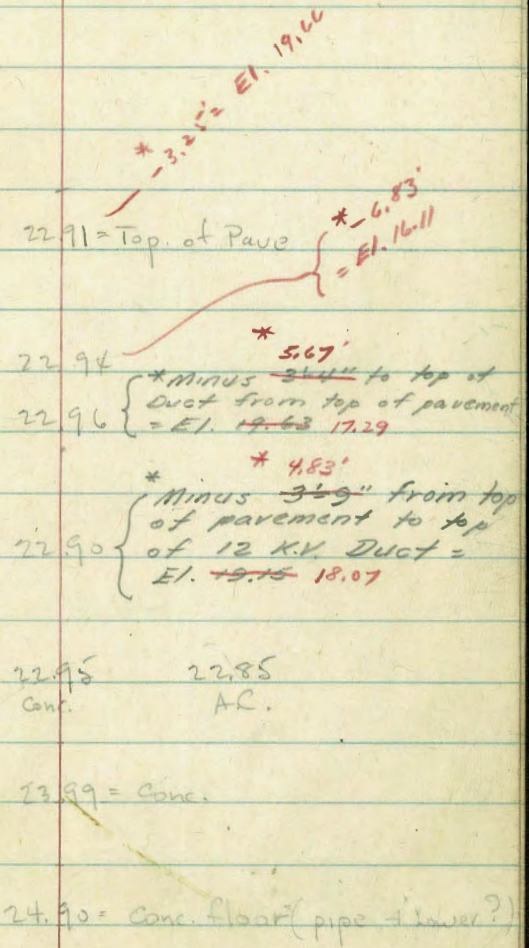 * -3.25' = El. 19.66
22.91 = Top. of Pave
* -6.83'
= El. 16.11
22.94
* 5.67'
*Minus 3'-4" to top of
22.96 Duct from top of pavement
= El. 19.63 17.29
* 4.83'
* Minus 3'-9" from top
of pavement to top
22.90 of 12 K.V. Duct =
El. 19.15 18.07
22.95 22.85
Conc. A.C.
23.99 = Conc.
24.90 = Conc. floor (pipe lower?)